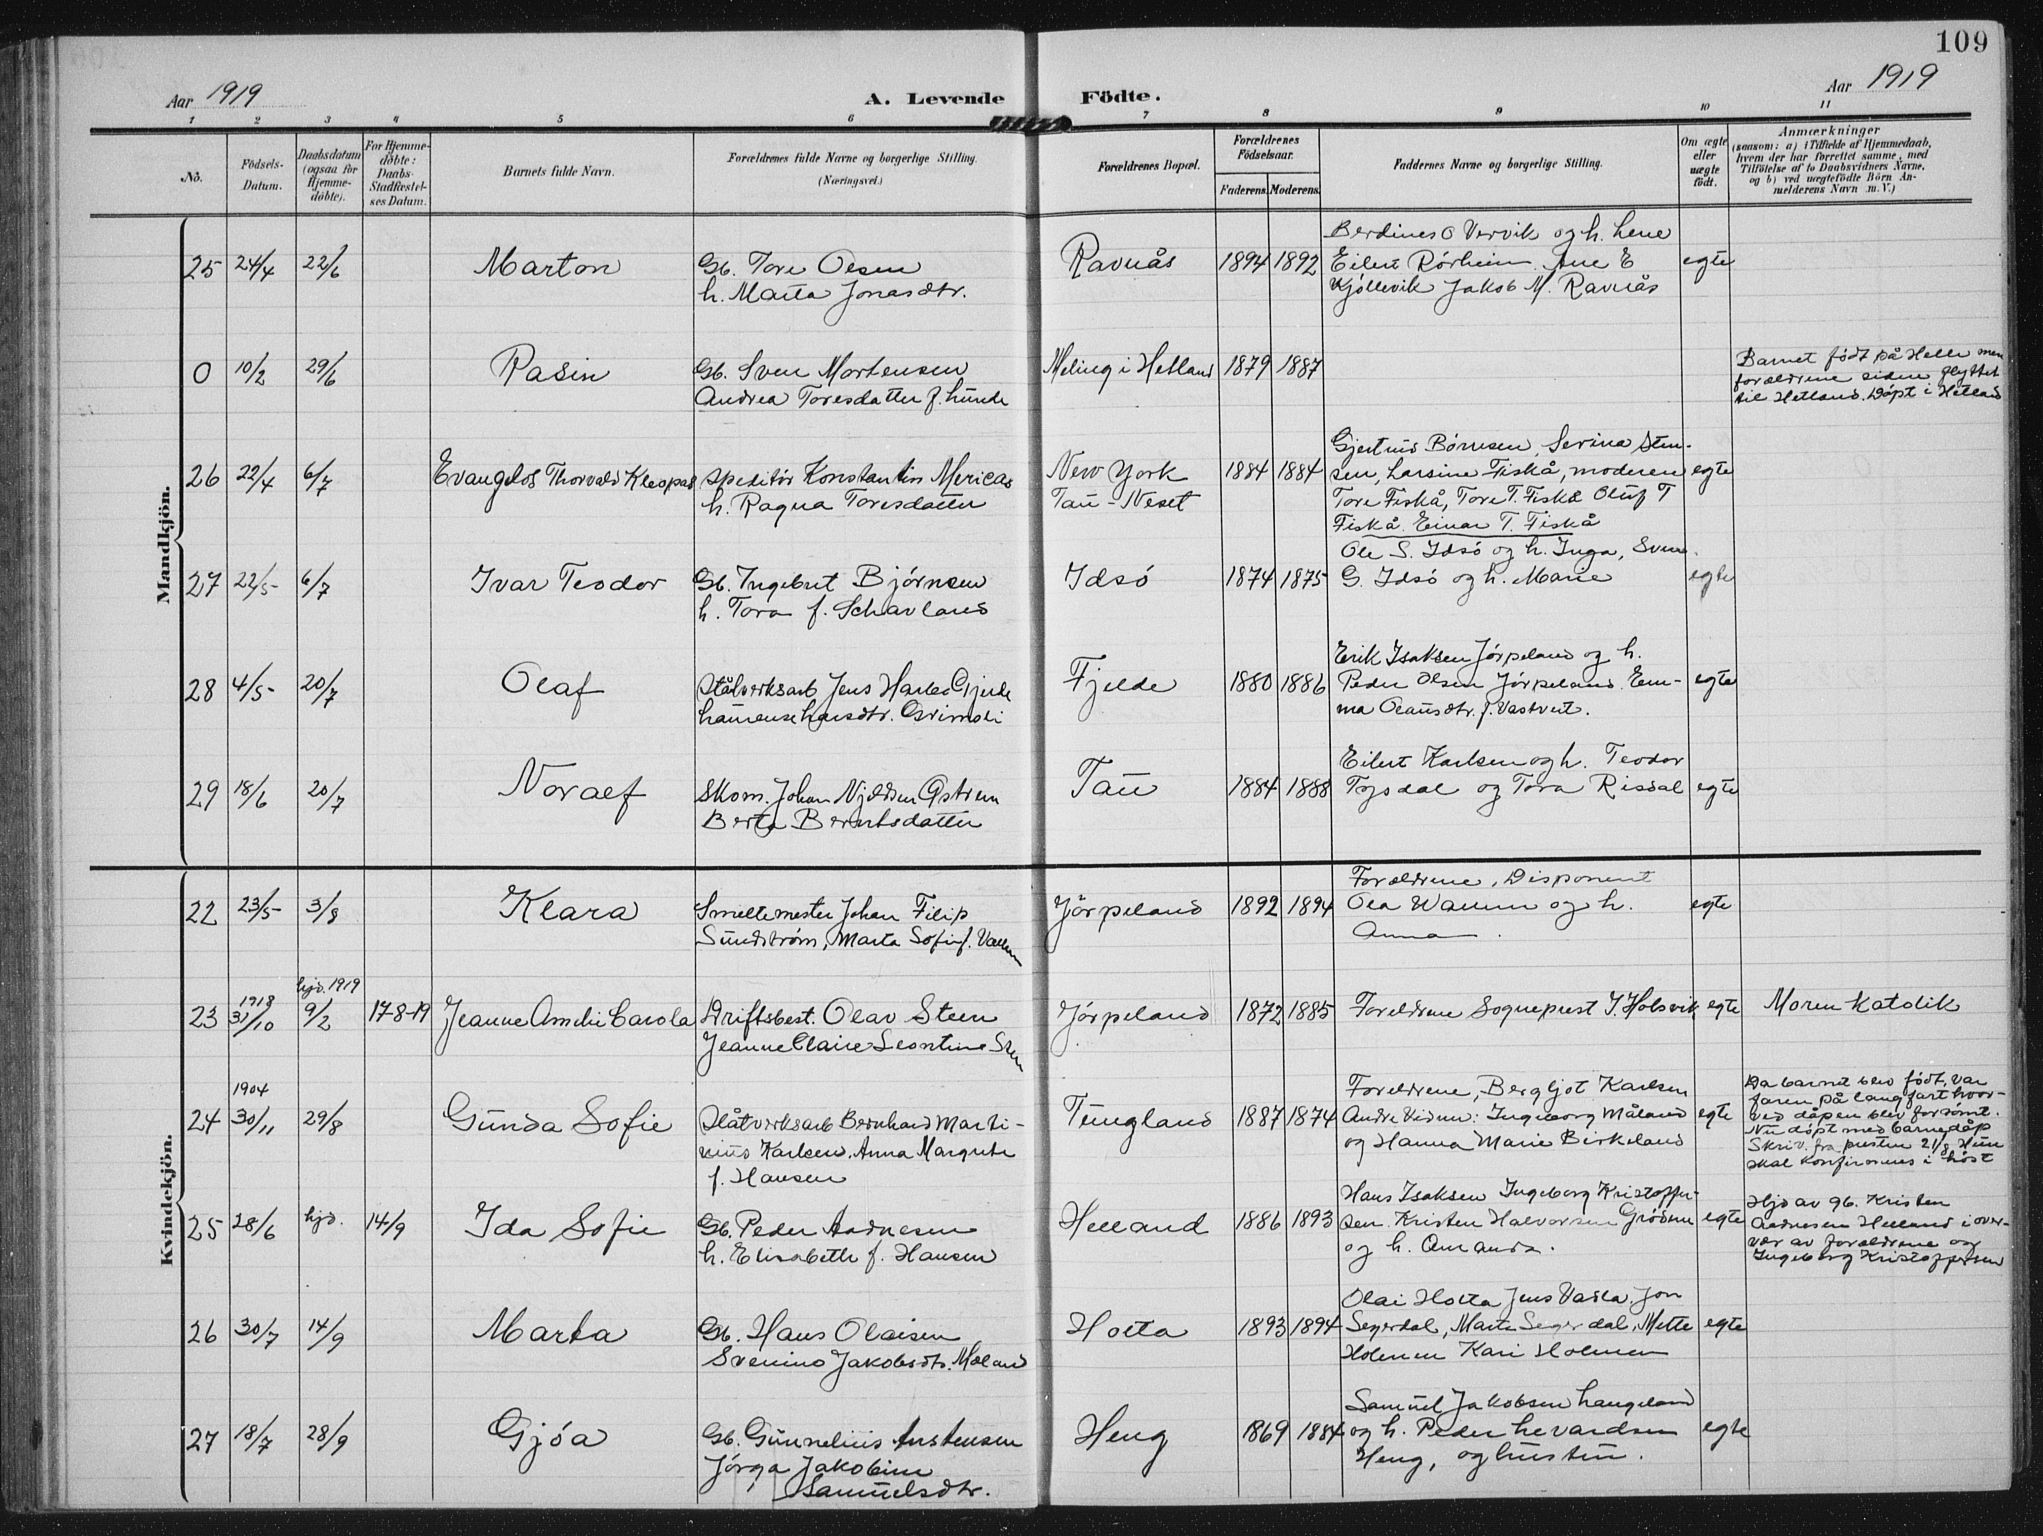 109
Aar 1919
A. Levende Födte.
Aar 1919
1 2 3 4 5 6 7 8 9 10 11
No.
Födsels-
Datum.
Daabsdatum
(ogsaa for
Hjemme-
döbte).
For Hjemme-
döbte:
Daabs-
Stadfæstel-
ses Datum.
Barnets fulde Navn.
Forældrenes fulde Navne og borgerlige Stilling.
(Næringsvei.)
Forældrenes Bopæl.
Forældrenes
Födselsaar.
Faderens. Moderens.
Faddernes Navne og borgerlige Stilling.
Om ægte
eller
uægte
födt.
Anmærkninger
(saasom: a) i Tilfælde af Hjemmedaab,
hvem der har forrettet samme, med
Tilföielse af to Daabsvidners Navne,
og b) ved uægtefödte Börn An-
melderens Navn m. V.)
Mandkjön.
Berdines O Vervik og h. Lene
25 24/4 22/6 Marton Gb. Tore Olsen Ravnås 1894 1892 Eilert Rörheim. Ane E egte
h. Marta Jonasdtr. Kjöllevik Jakob M. Ravnås
0 10/2 29/6 Rasin Gb. Sven Mortensen Meling i Hetland 1879 1887
Andrea Toresdatter f. Lunde
Barnet födt på Helle men
forældrene siden flyttet
til Hetland. Döpt i Hetland
Gjertrud Börresen, Serina Sten-
26 22/4 6/7 Evangelos Thorvald Kleopas Speditör Konstantin Mericas New York 1884 1884 sen, Larsine Fiskå, moderen egte
h. Ragna Toresdatter Tau - Neset Tore Fiskå, Tore T. Fiskå Oluf T
Fiskå. Einar T. Fiskå
Ole S. Idsö og h. Inga, Sven
27 22/5 6/7 Ivar Teodor Gb. Ingebret Björnsen Idsö 1874 1875 G. Idsö og h. Marie egte
h. Tora f. Schavland
Erik Isaksen Jörpeland og h.
28 4/5 20/7 Olaf Stålverksarb Jens Harbo Gjerde Fjelde 1880 1886 Peder Olsen Jörpeland. Em- egte
ma Olausdtr. f. Vastveit.
Eilert Karlsen og h. Teodor
29 18/6 20/7 Noralf Skom. Johan Njeldsen Östrem Tau 1884 1888 Tysdal og Tora Rissal egte
Berta Berntsdatter
Kvindekjön.
Forældrene, Disponent
22 23/5 3/8 Klara Smeltemester Johan Filip Jörpeland 1892 1894 Ola Wallum og h. egte
Sundström, Marta Sofie f. Vallum Anna
1918 hjd. 1919
23 31/10 9/2 17-8-19 Jeanne Amelie Carola Driftsbest. Olav Steen Jörpeland 1872 1885 Foreldrene Sogneprest J. Holsvik egte Moren katolik
Jeanne Claire Leontine Steen
1904 Foreldrene, Bergljot Karlsen
24 30/11 29/8 Gunda Sofie Slåtverksarb Bernhard Marti- Tungland 1887 1874 Andre Vidner: Ingeborg Måland egte
nius Karlsen. Anna Margrete og Hanna Marie Birkeland
f. Hansen
Da barnet blev födt, var
faren på langfart hvor-
ved dåpen blev forsömt.
Nu döpt med barnedåp
Skriv. fra presten 21/8 Hun
skal konfirmeres i höst
Hans Isaksen Ingeborg Kristoffer-
25 28/6 hjd. 14/9 Ida Sofie Gb. Peder Aadnesen Helland 1886 1893 sen. Kristen Halvorsen Grödem egte
h. Elisabeth f. Hansen og h. Amanda.
Hjd av gb. Kristen
Aadnesen Helland i over-
vær av forældrene og
Ingeborg Kristoffersen
Olai Holta Jens Vadla. Jon
26 30/7 14/9 Marta Gb. Hans Olaisen Holta 1893 1894 Segerdal, Marta Segerdal, Mette egte
Svenine Jakobsdtr. Moland Holmen Kari Holmen
Samuel Jakobsen Langeland
27 18/7 28/9 Gjöa Gb. Gunnelius Austensen Heng 1869 1884 og h. Peder Levardsen egte
Jörga Jakobine Heng, og hustru.
Samuelsdtr.